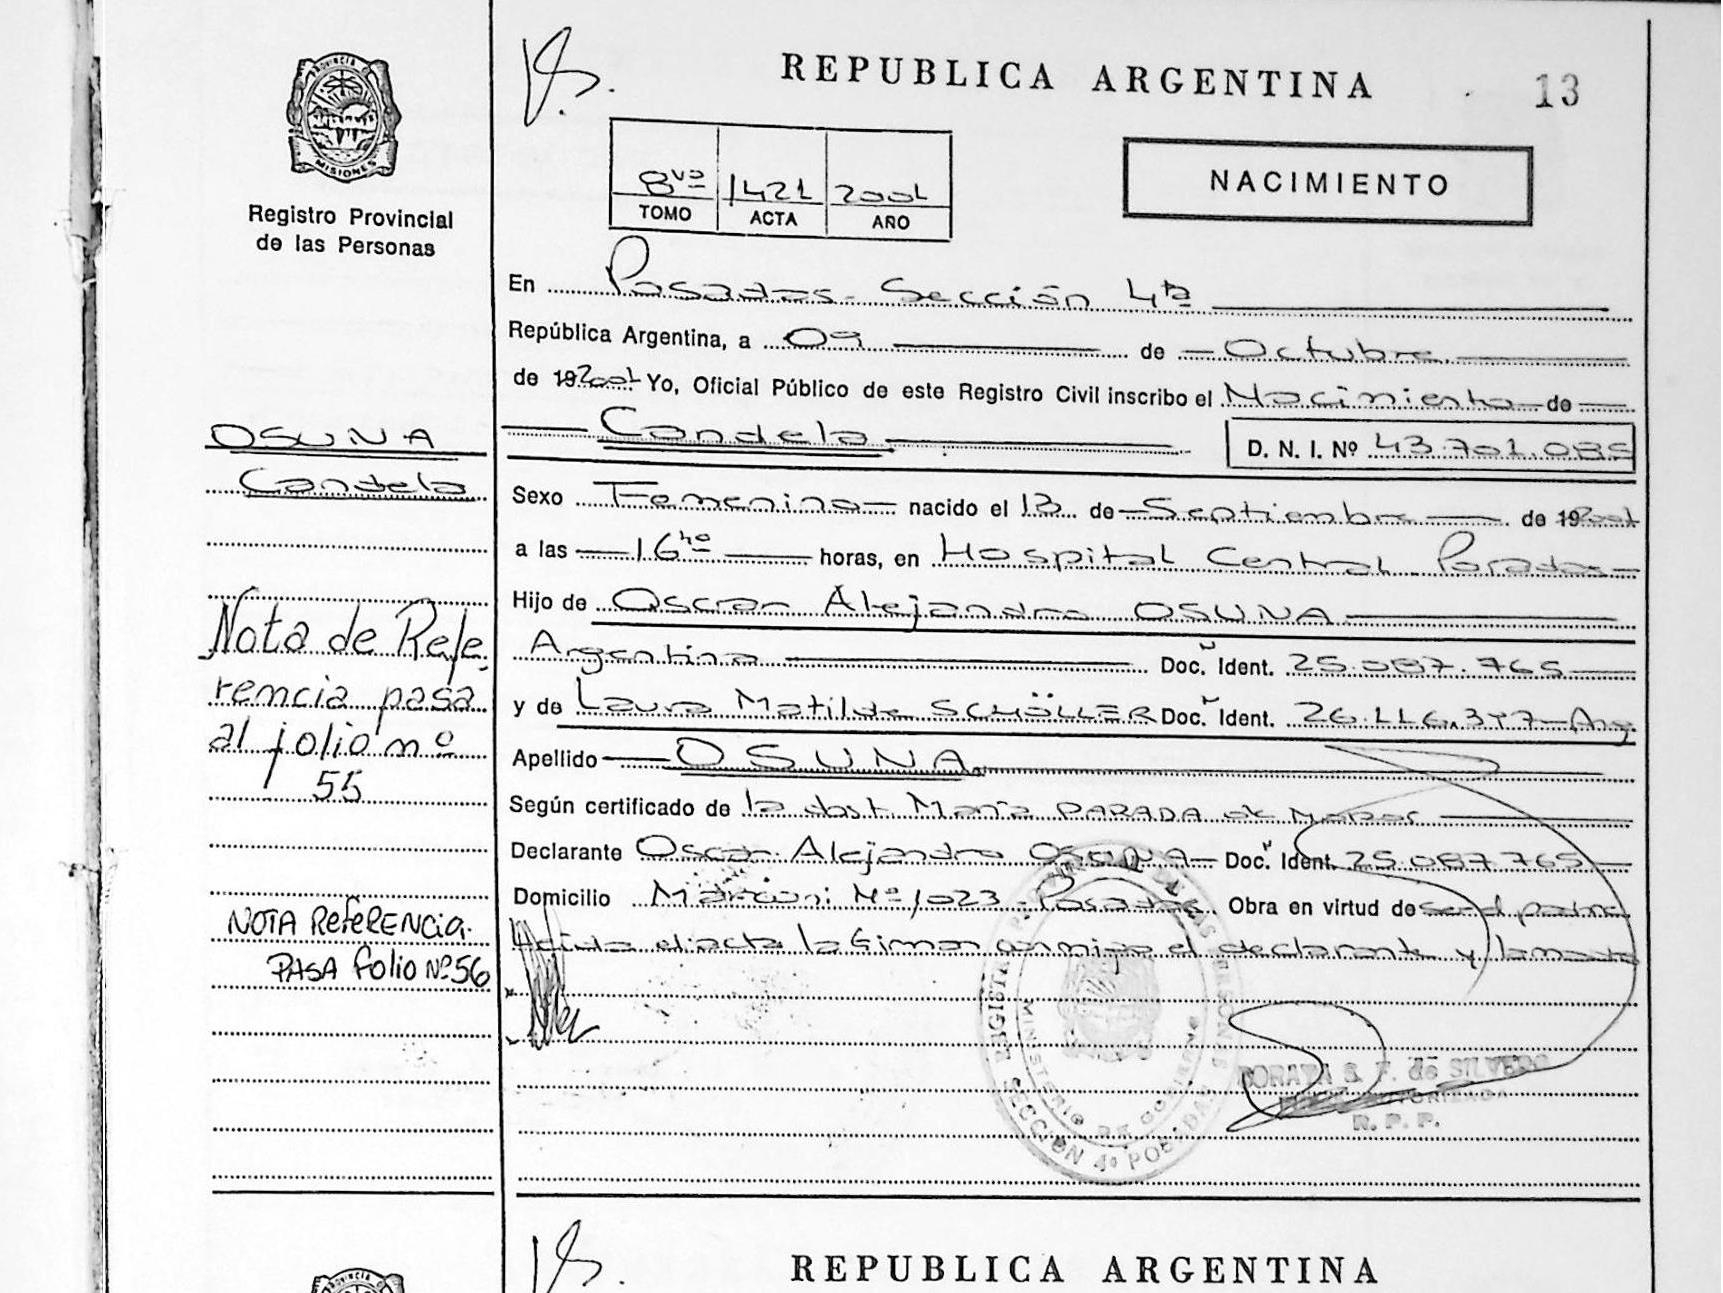 REPUBLICA ARGENTINA
13
PROVINCIA D
MISIONES
Registro Provincial
de las Personas
8vo 1421 2001
TOMO ACTA AÑO
NACIMIENTO
En Posadas - Sección 4ta
República Argentina, a 09 de Octubre
de 192001 Yo, Oficial Público de este Registro Civil inscribo el Nacimiento de
Candela D. N. I. Nº 43.701.085
OSUNA
Candela
Sexo Femenino nacido el 13 de Septiembre de 192001
a las 16 hs horas, en Hospital Central Posadas
Hijo de Oscar Alejandro OSUNA
Argentina Doc. Ident. 25.087.765
y de Laura Matilde SCHÖLLER Doc. Ident. 26.116.347 Arg
Apellido OSUNA
Según certificado de la obst. María PARADA de
Declarante Oscar Alejandro OSUNA Doc. Ident. 25.087.765
Domicilio Marconi Nº 1023 - Posadas Obra en virtud de ser el padre
Leída el acta la firman conmigo el declarante y la madre
Nota de Refe
rencia pasa
al folio nº
55
NOTA REFERENCIA
PASA folio Nº 56
MINISTERIO DE GOBIERNO
SECCION 4º POSADAS
SORAYA S. F. de SILVERO
AUTORIZADA
R. P. P.
REPUBLICA ARGENTINA
PROVINCIA D